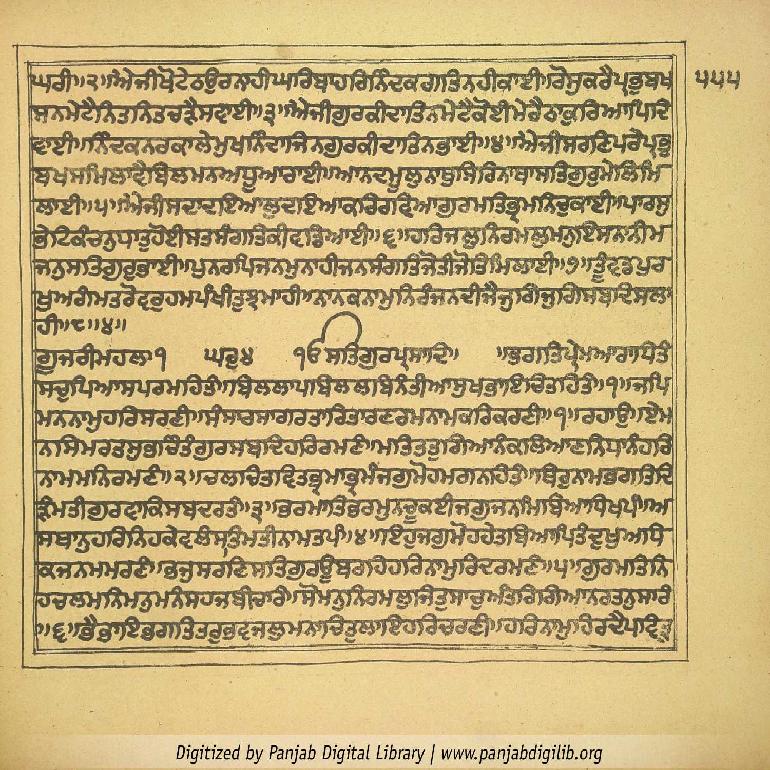 ਘਰੀ॥੨॥ਐਜੀਖੋਟੇਠਉਰਨਾਹੀਘਰਿਬਾਹਰਿਨਿੰਦਕਗਤਿਨਹੀਕਾਈ॥ਰੋਸੁਕਰੈਪ੍ਰਭੁਬਖ
ਸਨਮੇਟੈਨਿਤਨਿਤਚੜੈਸਵਾਈ॥੩॥ਐਜੀਗੁਰਕੀਦਾਤਿਨਮੇਟੈਕੋਈਮੇਰੈਠਾਕੁਰਿਆਪਿਦਿ
ਵਾਈ॥ਨਿੰਦਕਨਰਕਾਲੇਮੁਖਨਿੰਦਾਜਿਨਗੁਰਕੀਦਾਤਿਨਭਾਈ॥੪॥ਐਜੀਸਰਣਿਪਰੈਪ੍ਰਭੁ
ਬਖਸਿਮਿਲਾਵੈਬਿਲਮਨਅਧੂਆਰਾਈ॥ਆਨਦਮੂਲੁਨਾਥੁਸਿਰਿਨਾਥਾਸਤਿਗੁਰੁਮੇਲਿਮਿ
ਲਾਈ॥੫॥ਐਜੀਸਦਾਦਇਆਲੁਦਇਆਕਰਿਰਵਿਆਗੁਰਮਤਿਭ੍ਰਮਨਿਚੁਕਾਈ॥ਪਾਰਸੁ
ਭੇਟਿਕੰਚਨੁਧਾਤੁਹੋਈਸਤਸੰਗਤਿਕੀਵਡਿਆਈ॥੬॥ਹਰਿਜਲੁਨਿਰਮਲੁਮਨੁਇਸਨਾਨੀਮ
ਜਨੁਸਤਿਗੁਰੁਭਾਈ॥ਪੁਨਰਪਿਜਨਮੁਨਾਹੀਜਨਸੰਗਤਿਜੋਤੀਜੋਤਿਮਿਲਾਈ॥੭॥ਤੂੰਵਡਪੁਰ
ਖੁਅਗੰਮਤਰੋਵਰੁਹਮਪੰਖੀਤੁਝਮਾਹੀ॥ਨਾਨਕਨਾਮੁਨਿਰੰਜਨਦੀਜੈਜੁਗਿਜੁਗਿਸਬਦਿਸਲਾ
ਹੀ॥੮॥੪॥
ਗੂਜਰੀਮਹਲਾ੧ ਘਰੁ੪ ੴਸਤਿਗੁਰਪ੍ਰਸਾਦਿ॥ ॥ਭਗਤਿਪ੍ਰੇਮਆਰਾਧਿਤੰ
ਸਚੁਪਿਆਸਪਰਮਹਿਤੰ॥ਬਿਲਲਾਪਬਿਲਲਬਿਨੰਤੀਆਸੁਖਭਾਇਚਿਤਹਿਤੰ॥੧॥ਜਪਿ
ਮਨਨਾਮੁਹਰਿਸਰਣੀ॥ਸੰਸਾਰਸਾਗਰਤਾਰਿਤਾਰਣਰਮਨਾਮਕਰਿਕਰਣੀ॥੧॥ਰਹਾਉ॥ਏਮ
ਨਮਿਰਤਸੁਭਚਿੰਤੰਗੁਰਸਬਦਿਹਰਿਰਮਣੰ॥ਮਤਿਤਤੁਗਿਆਨੰਕਲਿਆਣਨਿਧਾਨੰਹਰਿ
ਨਾਮਮਨਿਰਮਣੰ॥੨॥ਚਲਚਿਤਵਿਤਭ੍ਰਮਾਭ੍ਰਮੰਜਗੁਮੋਹਮਗਨਹਿਤੰ॥ਥਿਰੁਨਾਮਭਗਤਿਦਿ
ੜੰਮਤੀਗੁਰਵਾਕਿਸਬਦਰਤੰ॥੩॥ਭਰਮਾਤਿਭਰਮੁਨਚੂਕਈਜਗੁਜਨਮਿਬਿਆਧਿਖਪੰ॥ਅ
ਸਥਾਨੁਹਰਿਨਿਹਕੇਵਲੰਸਤਿਮਤੀਨਾਮਤਪੰ॥੪॥ਇਹੁਜਗੁਮੋਹਹੇਤਬਿਆਪਿਤੰਦੁਖੁਅਧਿ
ਕਜਨਮਮਰਣੰ॥ਭਜੁਸਰਣਿਸਤਿਗੁਰਊਬਰਹਿਹਰਿਨਾਮੁਰਿਦਰਮਣੰ॥੫॥ਗੁਰਮਤਿਨਿ
ਹਚਲਮਨਿਮਨੁਮਨੰਸਹਜਬੀਚਾਰੰ॥ਸੋਮਨੁਨਿਰਮਲੁਜਿਤੁਸਾਚੁਅੰਤਰਿਗਿਆਨਰਤਨੁਸਾਰੰ
॥੬॥ਭੈਭਾਇਭਗਤਿਤਰੁਭਵਜਲੁਮਨਾਚਿਤੁਲਾਇਹਰਿਚਰਣੀ॥ਹਰਿਨਾਮੁਹਿਰਦੈਪਵਿਤ੍ਰੁ
੫੫੫
Digitized by Panjab Digital Library | www.panjabdigilib.org